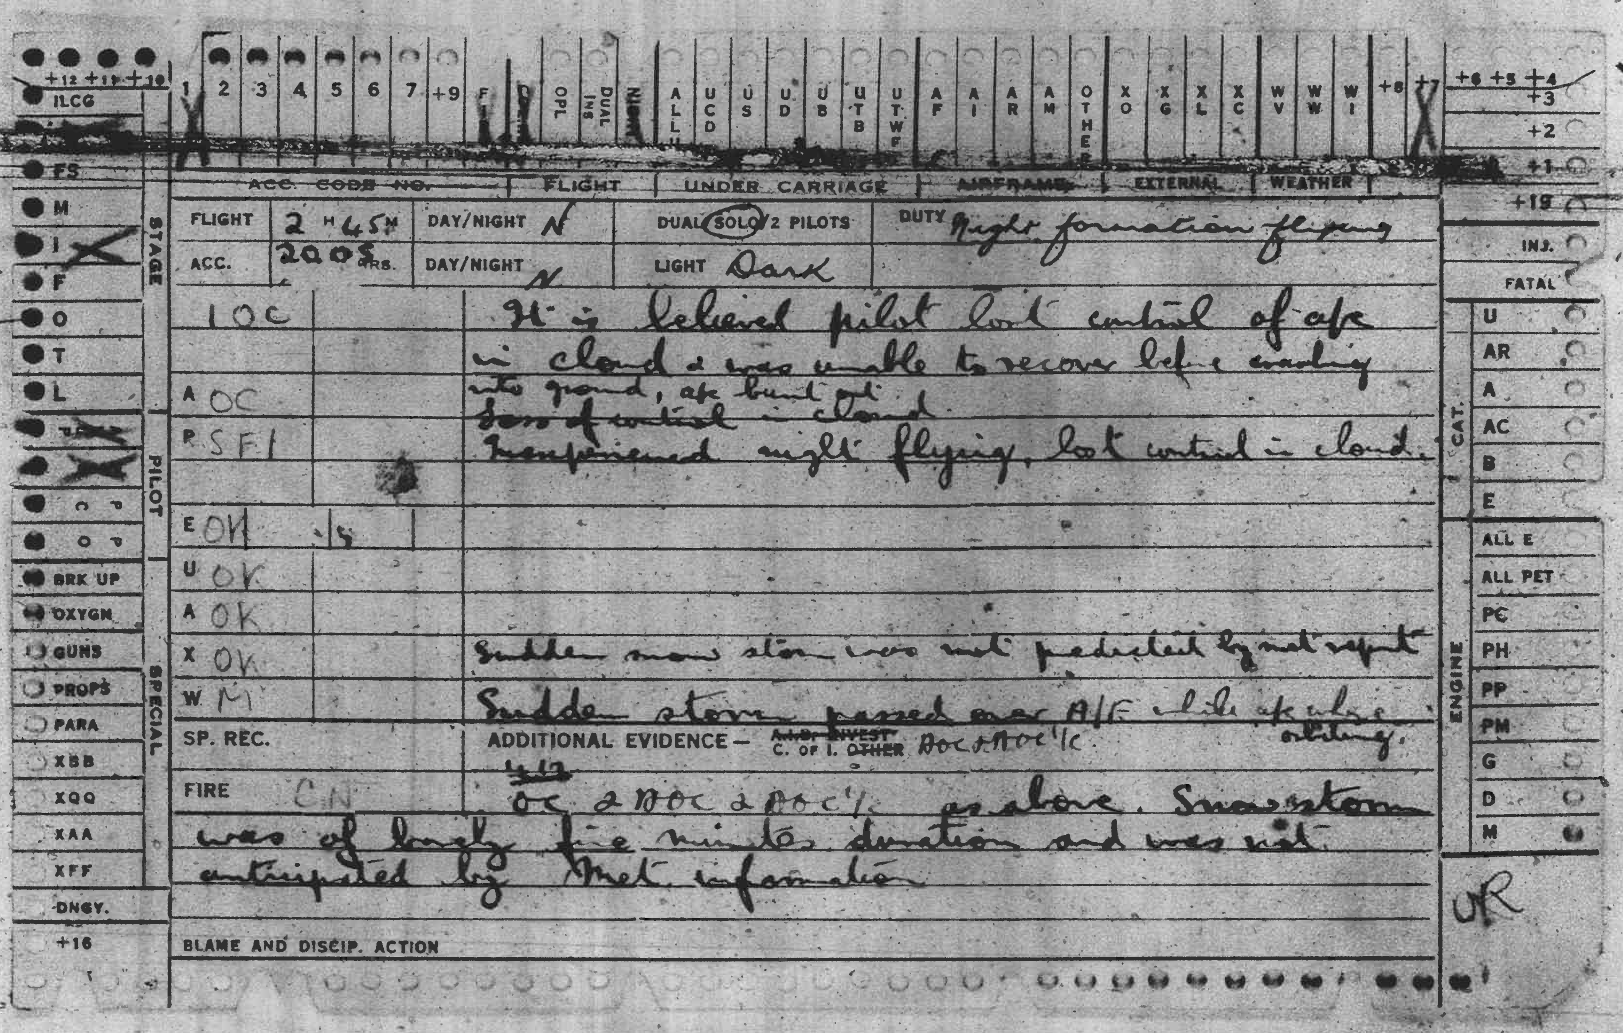 +12 +11 +10
1 2 3 4 5 6 7 +9 OPL DUAL INS NIGHT ALL U UCD US UD UB UTB UTWF AF AI AR AM OTHER XO XG XL XC WV WW WI +8 +7
+6 +5 +4
+3
+2
+1
+19
INJ.
FATAL
ILCG
FS
M
I
F
O
T
L
P C
P O
BRK UP
OXYGN
GUNS
PROPS
PARA
XBB
XQQ
XAA
XFF
DNGY.
+16
STAGE
PILOT
SPECIAL
ACC. CODE NO. FLIGHT UNDER CARRIAGE AIRFRAME EXTERNAL WEATHER
FLIGHT 2 H 45 M DAY/NIGHT N DUAL/SOLO/2 PILOTS DUTY Night formation flying
ACC. 2005 HRS. DAY/NIGHT N LIGHT Dark
1 OC It is believed pilot lost control of a/c
in cloud & was unable to recover before crashing
A OC into ground, a/c burnt out
Loss of control in cloud
P SF1 Inexperienced night flying, lost control in cloud.
E OK
U OK
A OK
X OK Sudden snow storm was not predicted by met report
W M Sudden storm passed over A/F while a/c were
orbiting.
SP. REC. ADDITIONAL EVIDENCE — A.I.B. INVEST
C. OF I. OTHER AOC & AOC i/c
FIRE CN OC & AOC & AOC i/c as above. Snowstorm
was of barely five minutes duration and was not
anticipated by Met. information
BLAME AND DISCIP. ACTION
U
AR
A
AC
B
E
CAT.
ALL E
ALL PET
PC
PH
PP
PM
G
D
M
ENGINE
UR